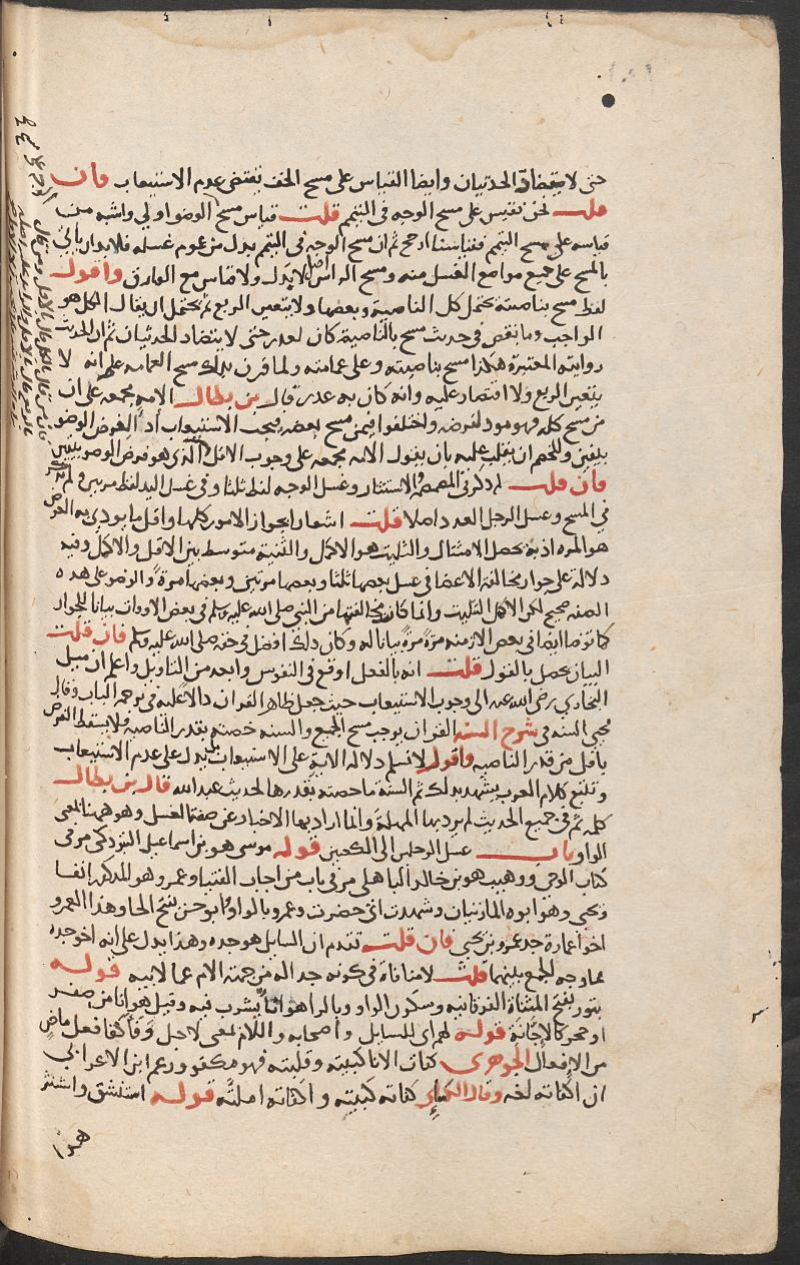 حتى لا يتضاد الحديثان وايضا القياس على مسح الخف يقتضى عدم الاستيعاب فان
قلت نحن نقيس على مسح الوجه فى التيمم قلت قياس مسح الوضوء اولى واشبه من
قياسه على مسح التيمم فقياسنا ارجح ثم ان مسح الوجه فى التيمم بدل من عموم غسله فلا بد ان ياتى
بالمسح على جميع مواضع الغسل منه ومسح الراس اصل لا بدل ولا قياس مع الفارق واقول
لفظ مسح بناصيته يحتمل كل الناصية وبعضها ولا يتعين الربع ثم يحتمل ان يقال الكل هو
الواجب وما نقص فى حديث مسح بالناصية كان لعذر حتى لا يتضاد الحديثان ثم ان الحديث
روايته المعتبرة هكذا مسح بناصيته وعلى عمامته ولما قرن بذلك مسح العمامه علم انه لا
يتعين الربع ولا اقتصار عليه وانه كان به عذر قال بن بطال الامة مجمعه على ان
من مسح كله فهو مود لفرضه واختلفوا فيمن مسح بعضه فيجب الاستيعاب اداء لفرض الوضو
بيقين وللخصم ان يقلب عليه بان يقول الامه مجمعه على وجوب الاقل الذى هو فرض الوضو بيقين
فان قلت لم ذكر فى المضمضه والاستنثار وغسل الوجه لفظ ثلثا وفى غسل اليد لفظ مرتين ولم يذكر
فى المسح وغسل الرجل العدد اصلا قلت اشعارا بجواز الامور كلها واقل ما يودى به الفرض
هو المره اذ به يحصل الامتثال والتثليث هو الاكمل والتثنية متوسط بين الاقل والاكمل وفيه
دلاله على جواز مخالفة الاعضا فى غسل بعضها ثلثا وبعضها مرتين وبعضها مرة والوضو على هذه
الصفه صحيح لكن الاكمل التثليث وانما كان مخالفتها من النبى صلى الله عليه وسلم فى بعض الاوقات بيانا للجواز
كما توضا ايضا فى بعض الازمنه مرة مرة بيانا له وكان ذلك افضل فى حقه صلى الله عليه وسلم فان قلت
البيان يحصل بالقول قلت انه بالفعل اوقع فى النفوس وابعد من التاويل واعلم ان ميل
البخارى رضى الله عنه الى وجوب الاستيعاب حيث جعل ظاهر القران دالا عليه فى ترجمة الباب وقال
محيى السنه فى شرح السنه القران يوجب مسح الجميع والسنه خصته بقدر الناصيه ولا يسقط الفرض
باقل من قدر الناصيه واقول لا نسلم دلاله الاية على الاستيعاب بل يدل على عدم الاستيعاب
وتتبع كلام العرب يشهد بذلك ثم السنة ما خصته بقدرها لحديث عبد الله قال بن بطال
كلمه ثم فى جميع الحديث لم يرد بها المهلة وانما اراد بها الاخبار عن صفة الغسل وهو ههنا بمعنى
الواو باب غسل الرجلين الى الكعبين قوله موسى هو بن اسماعيل التبوذكى مر فى
كتاب الوحى ووهيب هو بن خالد الباهلى مر فى باب من اجاب الفتيا وعمرو هو المذكور انفا
ويحيى وهو ابوه المازنيان وشهدت اى حضرت وعمرو بالواو وابو حسن بفتح الحا وهذا العمرو
اخو عمارة جد عمرو بن يحيى فان قلت تقدم ان السايل هو جده وهذا يدل على انه اخو جده
فما وجه الجمع بينهما قلت لا منافاة فى كونه جدا له من جهة الام عما لابيه قوله
بتور بفتح المثناة الفوقانيه وسكون الواو وبالرا هو انا يشرب فيه وقيل هو انا من صفر
او حجر كالاجانة قوله لهم اى للسايل واصحابه واللام بمعنى لاجل وفاكفا فعل ماض
من الافعال الجوهرى كفات الانا كببته وقلبته فهو مكفو وزعم ابن الاعرابى
ان اكفاته لغه وقال الكسائى كفاته كببته واكفاته املته قوله استنشق واستنثر
هذا